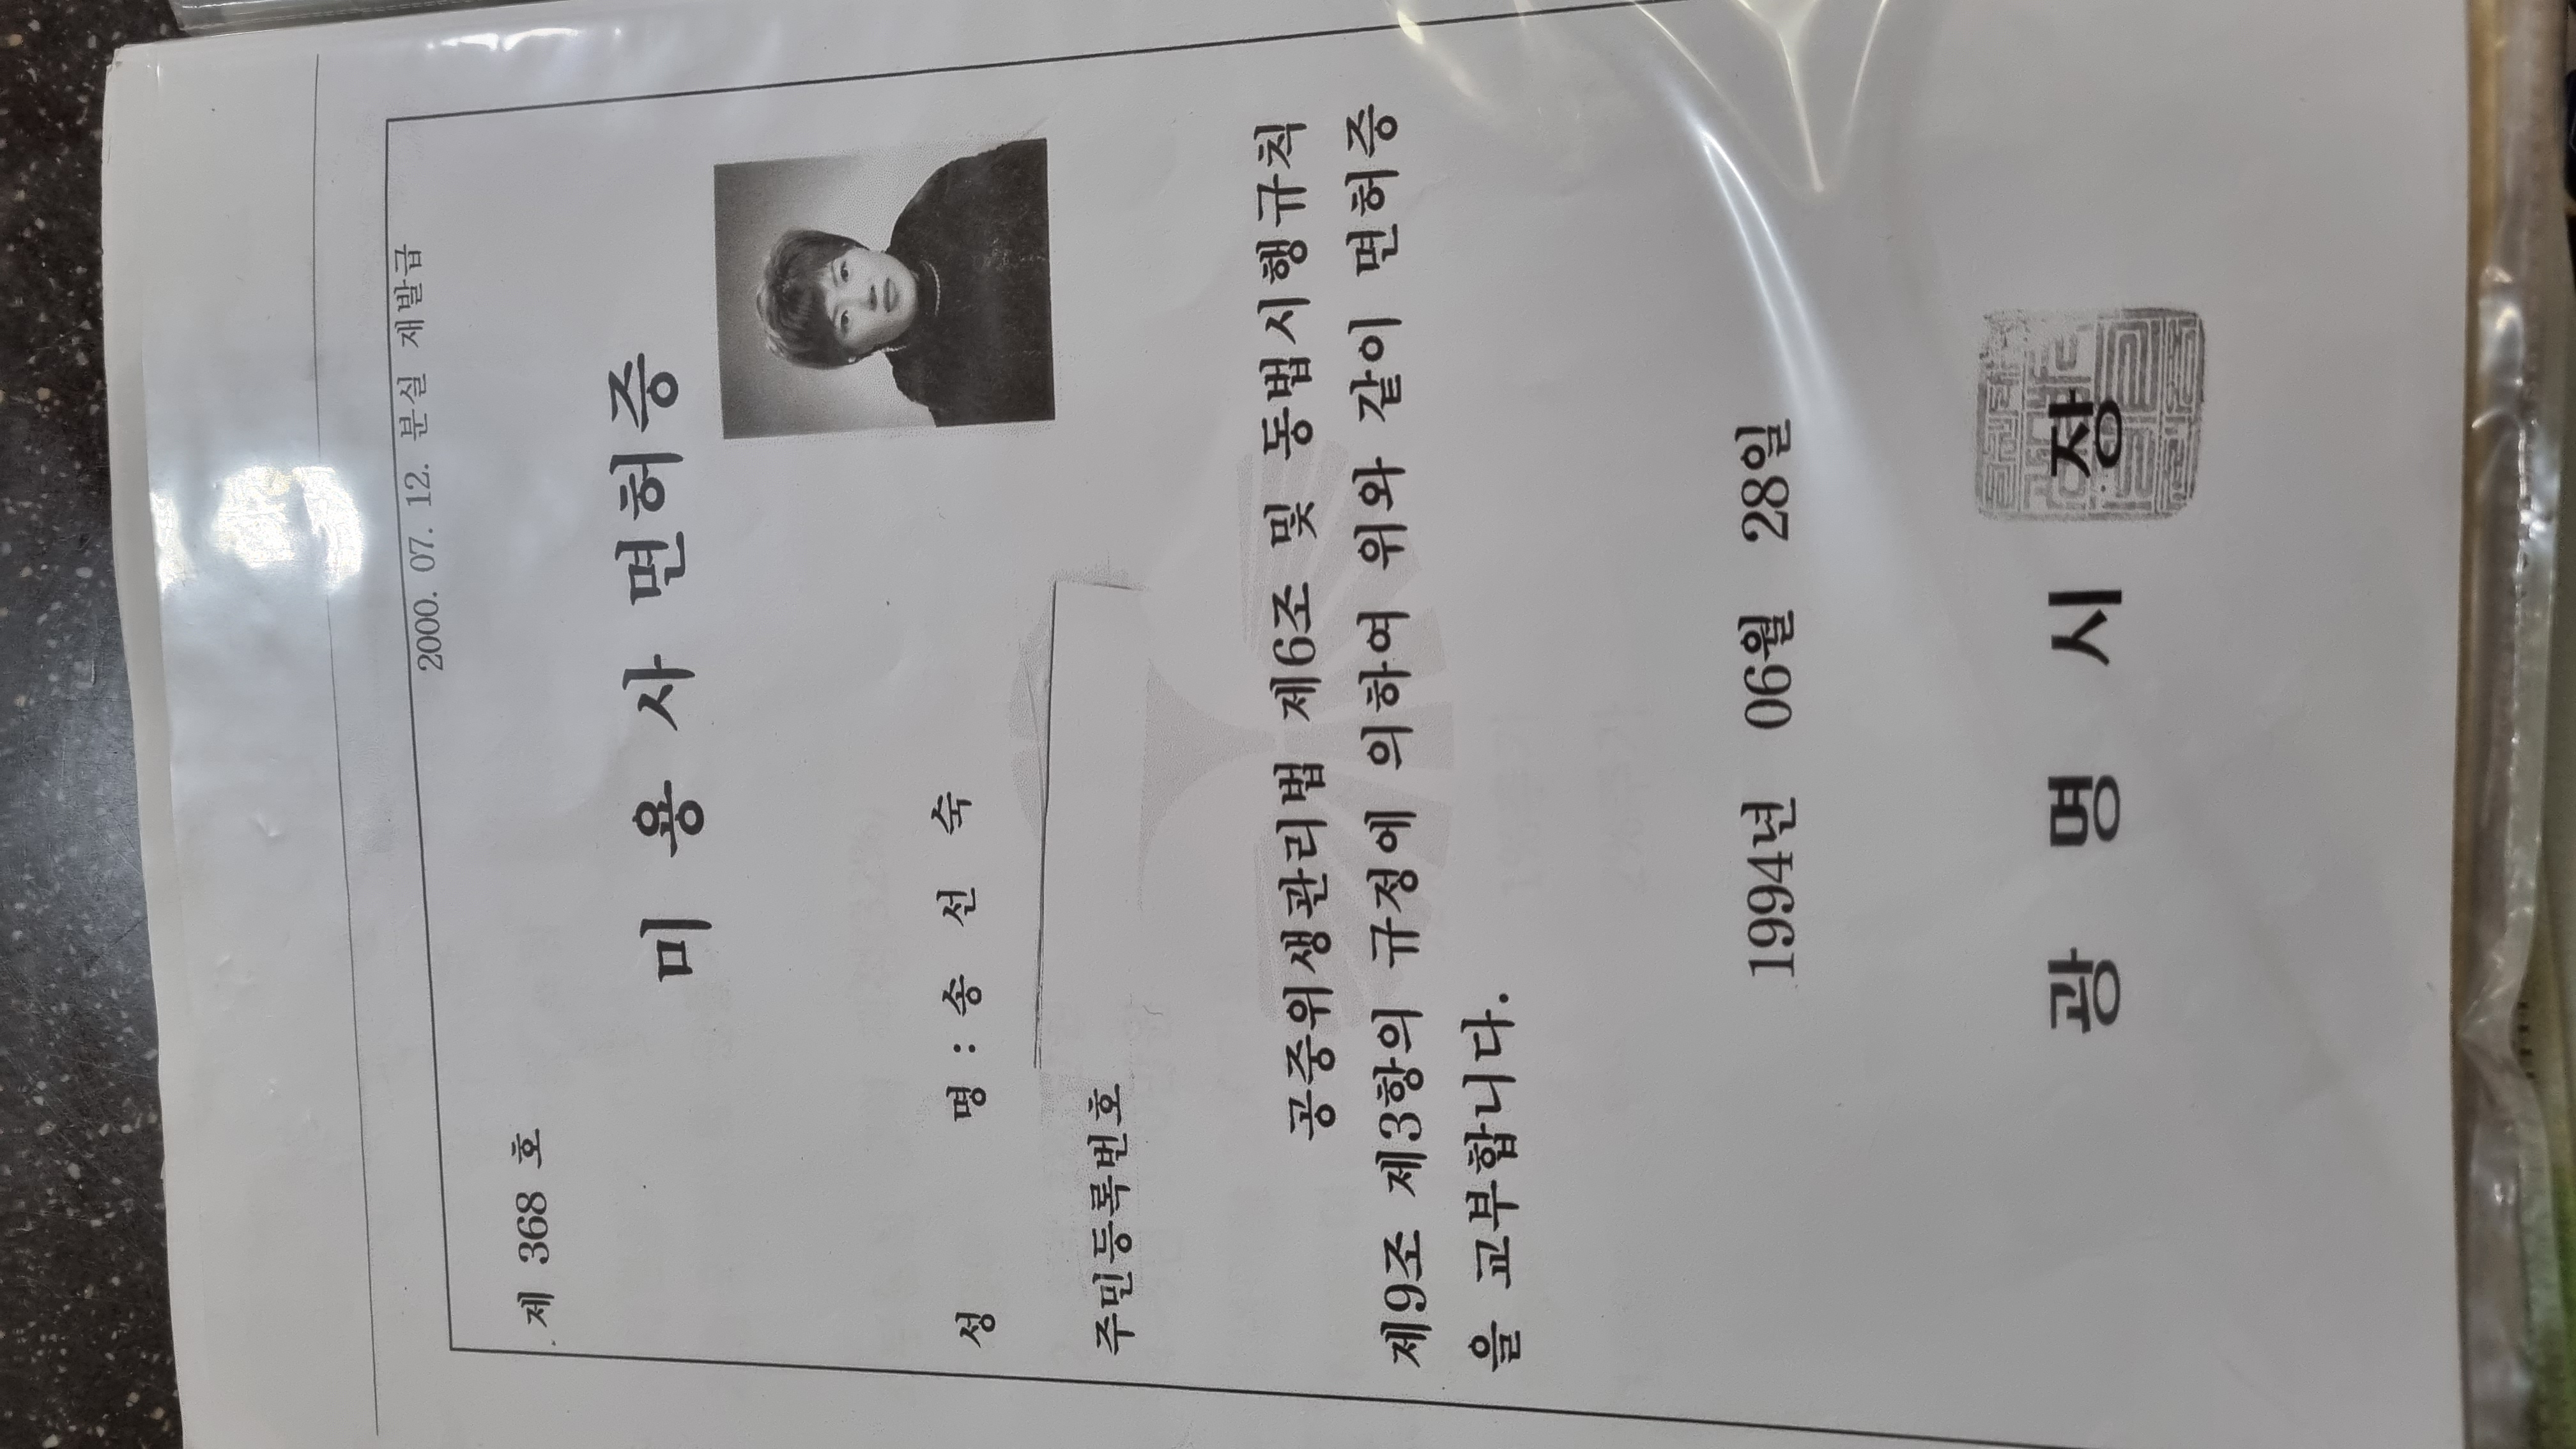 2000. 07. 12. 분실 재발급
제 368 호
미 용 사 면허증
성 명 : 송 선 숙
주민등록번호
공중위생관리법 제6조 및 동법시행규칙
제9조 제3항의 규정에 의하여 위와 같이 면허증
을 교부합니다.
1994년 06월 28일
광 명 시 장